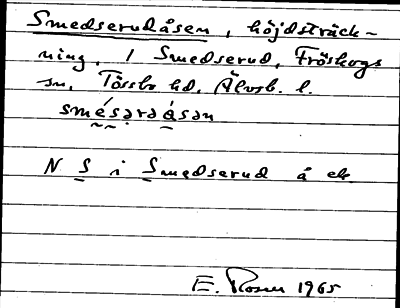 Smedserudåsen, höjdsträck-
ning, i Smedserud, Fröskogs
sn, Tössbo hd, Älvsb. l.
smésərəåsən
N S i Smedserud å ek
E. Rosen 1965